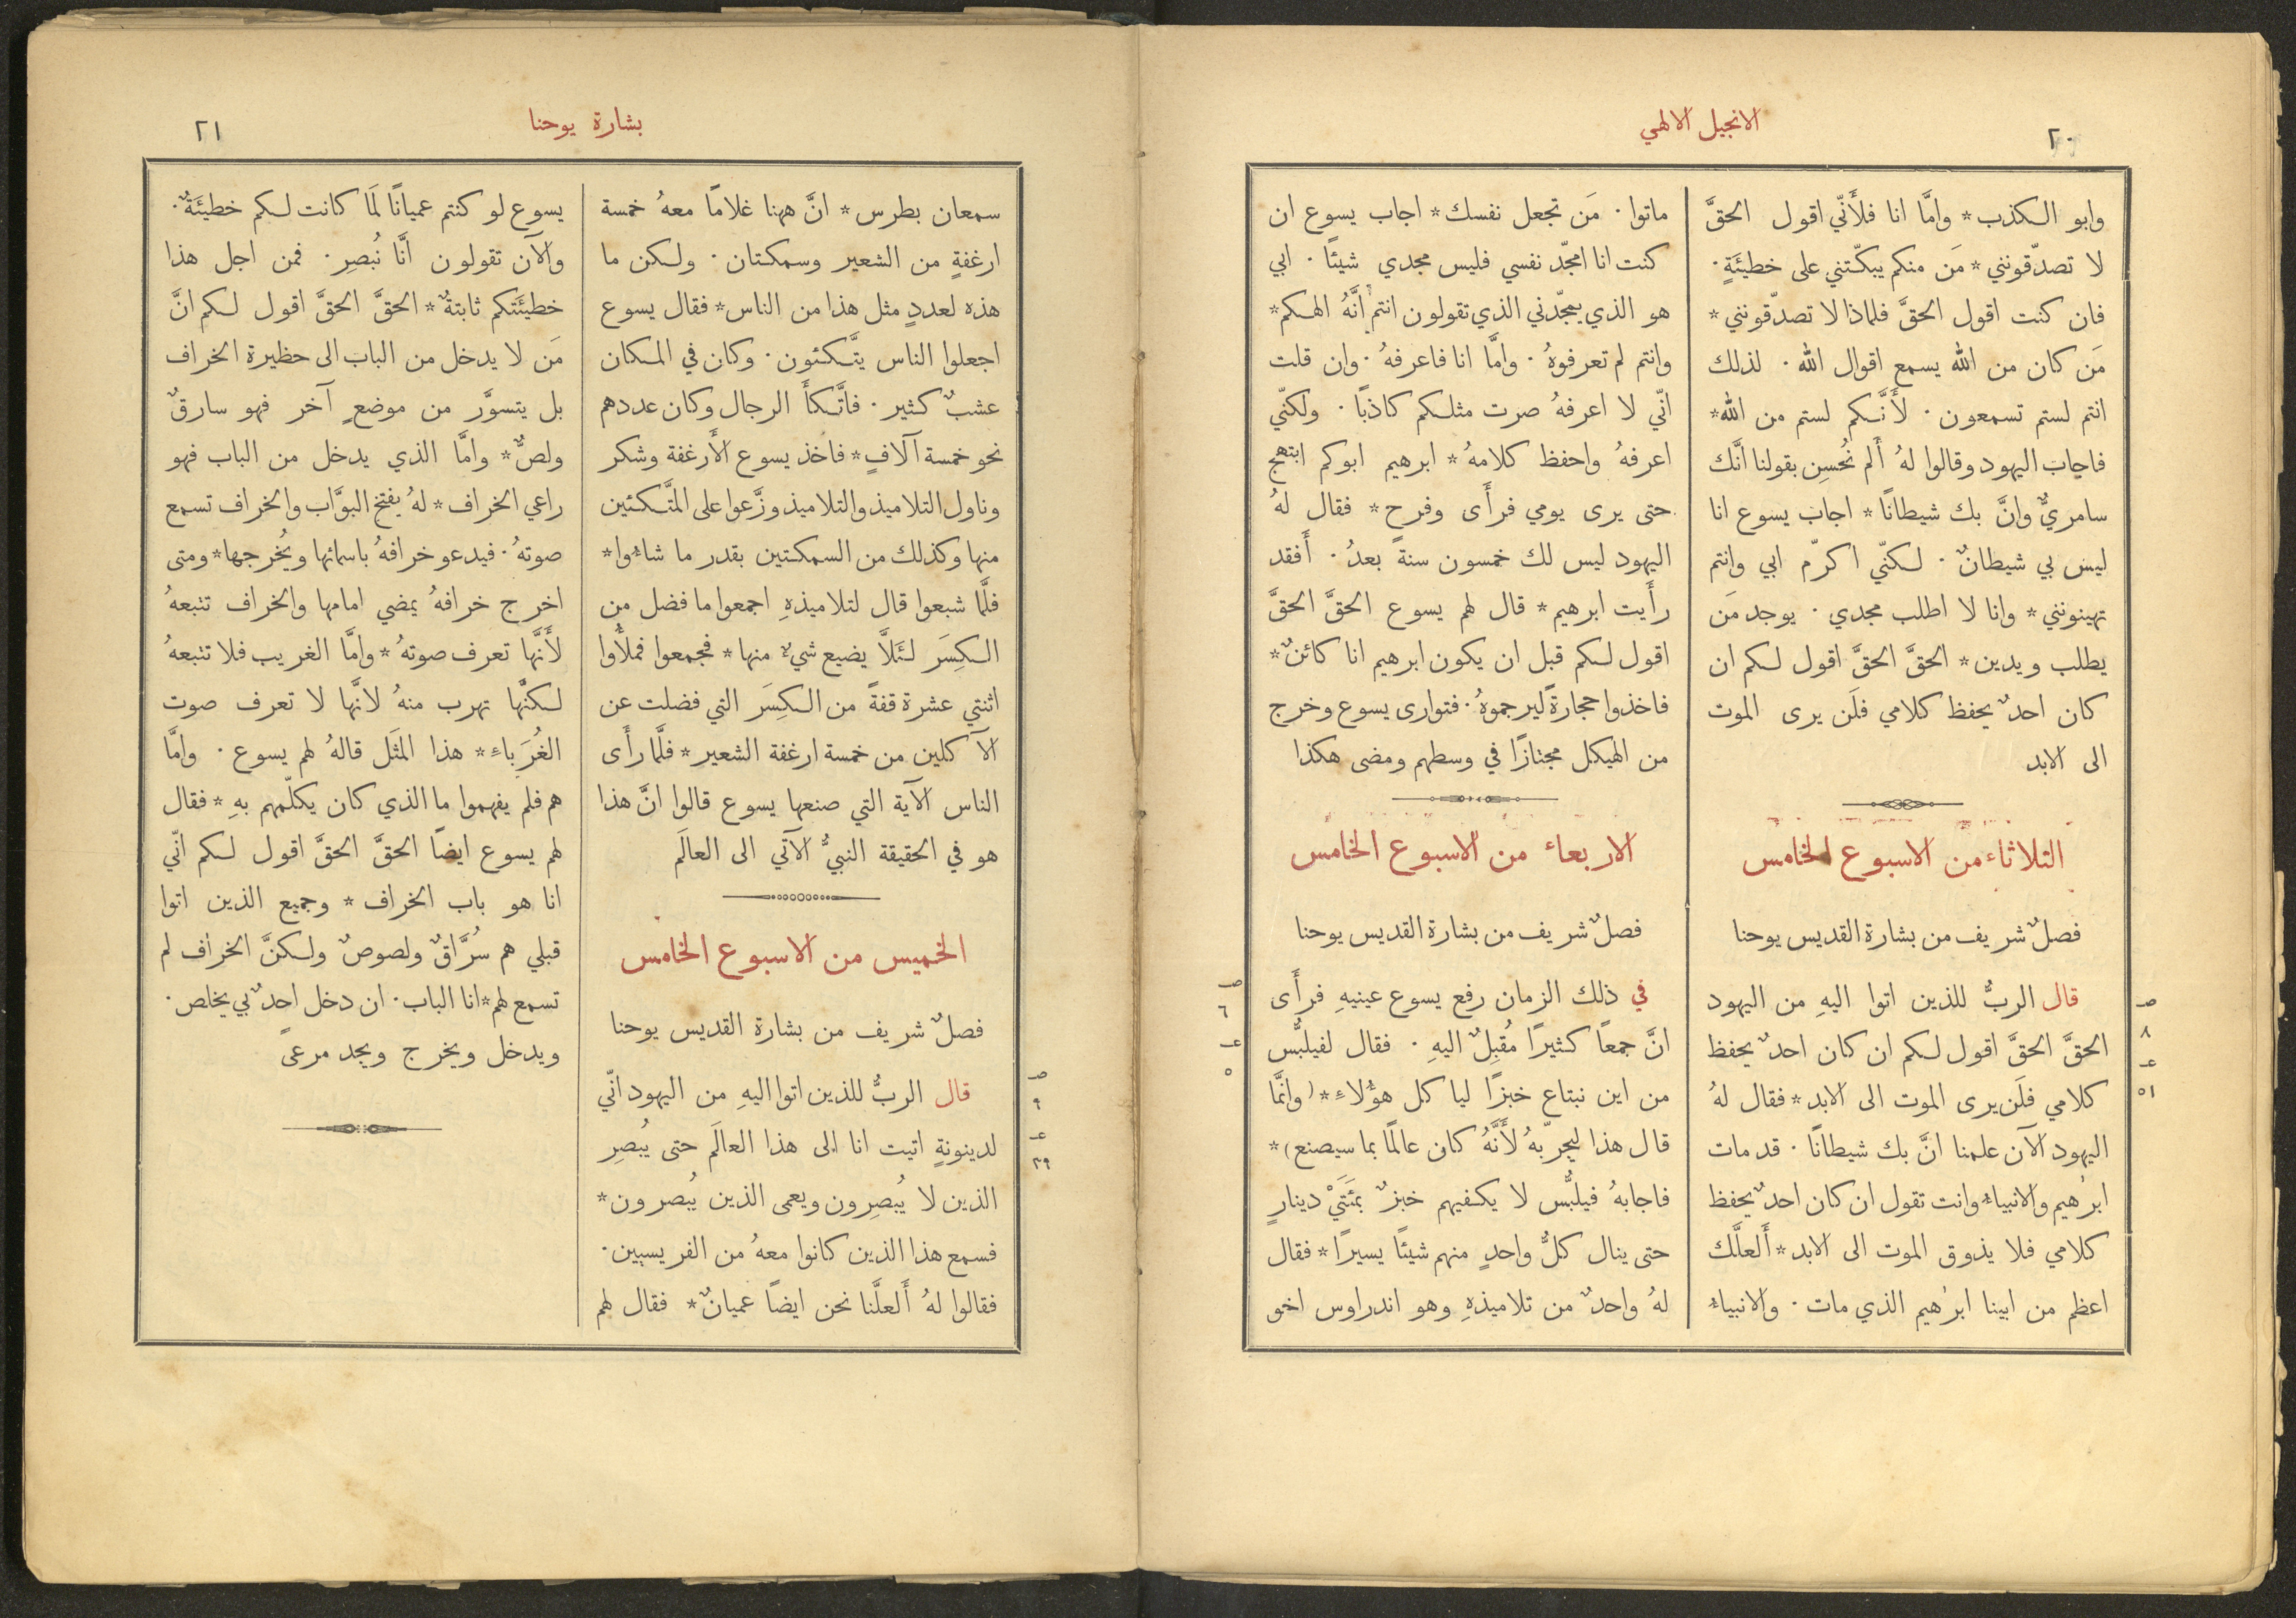 ٢٠
الانجيل الالهي
وابو الكذب * وامَّا انا فلأَنّي اقول الحقَّ
لا تصدّقونني * مَن منكم يبكّتني على خطيئَةٍ ·
فان كنت اقول الحقَّ فلماذا لا تصدّقونني *
مَن كان من الله يسمع اقوال الله · لذلك
انتم لستم تسمعون · لأَنَّكم لستم من الله*
فاجاب اليهود وقالوا لهُ أَلم نُحسِن بقولنا انَّك
سامريٌّ وانَّ بك شيطانًا * اجاب يسوع انا
ليس بي شيطانٌ · لكنّي اكرّم ابي وانتم
تهينونني * وانا لا اطلب مجدي · يوجد مَن
يطلب ويدين * الحقَّ الحقَّ اقول لكم ان
كان احدٌ يحفظ كلامي فلَن يرى الموت
الى الابد
الثلاثاء من الاسبوع الخامس
فصلٌ شريف من بشارة القديس يوحنا
قال الربُّ للذين اتوا اليهِ من اليهود
الحقَّ الحقَّ اقول لكم ان كان احدٌ يحفظ
كلامي فلَن يرى الموت الى الابد * فقال لهُ
اليهود الآن علمنا انَّ بك شيطانًا · قد مات
ابرٰهيم والانبياءُ وانت تقول ان كان احدٌ يحفظ
كلامي فلا يذوق الموت الى الابد * أَلعلَّك
اعظم من ابينا ابرٰهيم الذي مات · والانبياءُ
صـ
٨
عـ
٥١
ماتوا · مَن تجعل نفسك * اجاب يسوع ان
كنت انا امجّد نفسي فليس مجدي شيئًا · ابي
هو الذي يمجّدني الذي تقولون انتم أنَّهُ الهكم*
وانتم لم تعرفوهُ · وامَّا انا فاعرفهُ · وان قلت
انّي لا اعرفهُ صرت مثلكم كاذبًا · ولكنّي
اعرفهُ واحفظ كلامهُ * ابرهيم ابوكم ابتهج
حتى يرى يومي فرأَى وفرح * فقال لهُ
اليهود ليس لك خمسون سنة بعدُ · أَفقد
رأَيت ابرهيم * قال لهم يسوع الحقَّ الحقَّ
اقول لكم قبل ان يكون ابرهيم انا كائنٌ *
فاخذوا حجارةً ليرجموهُ · فتوارى يسوع وخرج
من الهيكل مجتازًا في وسطهم ومضى هكذا
الاربعاء من الاسبوع الخامس
فصلٌ شريف من بشارة القديس يوحنا
في ذلك الزمان رفع يسوع عينيهِ فرأَى
انَّ جمعًا كثيرًا مُقبِلٌ اليهِ · فقال لفيلبُّس
من اين نبتاع خبزًا لياكل هؤُلاءِ * (وانَّما
قال هذا ليجرّبهُ لأَنَّهُ كان عالمًا بما سيصنع) *
فاجابهُ فيلبُّس لا يكفيهم خبزٌ بمئَتَيْ دينارٍ
حتى ينال كلُّ واحدٍ منهم شيئًا يسيرًا * فقال
لهُ واحدٌ من تلاميذهِ وهو اندراوس اخو
صـ
٦
عـ
٥
بشارة يوحنا
٢١
سمعان بطرس * انَّ ههنا غلامًا معهُ خمسة
ارغفةٍ من الشعير وسمكتان · ولكن ما
هذه لعددٍ مثل هذا من الناس * فقال يسوع
اجعلوا الناس يتَّكئون · وكان في المكان
عشبٌ كثير · فاتَّكأَ الرجال وكان عددهم
نحو خمسة آلافٍ * فاخذ يسوع الأَرغفة وشكر
وناول التلاميذ والتلاميذ وزَّعوا على المتَّكئين
منها وكذلك من السمكتين بقدر ما شاءُوا *
فلَّما شبعوا قال لتلاميذهِ اجمعوا ما فضل من
الكِسَر لئَلاَّ يضيع شيءٌ منها * فجمعوا فملأُوا
اثنتي عشرة قفةً من الكِسَر التي فضلت عن
الآكلين من خمسة ارغفة الشعير * فلَّما رأَى
الناس الآية التي صنعها يسوع قالوا انَّ هذا
هو في الحقيقة النبيُّ الآتي الى العالَم
الخميس من الاسبوع الخامس
فصلٌ شريف من بشارة القديس يوحنا
قال الربُّ للذين اتوا اليهِ من اليهود انّي
لدينونةٍ اتيت انا الى هذا العالَم حتى يُبصِر
الذين لا يُبصِرون ويعمى الذين يُبصرون *
فسمع هذا الذين كانوا معهُ من الفريسيين ·
فقالوا لهُ أَلعلَّنا نحن ايضًا عميانٌ * فقال لهم
صـ
٩
عـ
٣٩
يسوع لو كنتم عميانًا لَما كانت لكم خطيئَةٌ ·
والآن تقولون انَّا نُبصِر · فمن اجل هذا
خطيئَتكم ثابتةٌ * الحقَّ الحقَّ اقول لكم انَّ
مَن لا يدخل من الباب الى حظيرة الخراف
بل يتسوَّر من موضعٍ آخر فهو سارقٌ
ولصٌّ * وامَّا الذي يدخل من الباب فهو
راعي الخراف * لهُ يفتح البوَّاب والخراف تسمع
صوتهُ · فيدعو خرافهُ باسمائها ويُخرجها * ومتى
اخرج خرافهُ يمضي امامها والخراف تتبعهُ
لأَنَّها تعرف صوتهُ * وامَّا الغريب فلا تتبعهُ
لكنَّها تهرب منهُ لانَّها لا تعرف صوت
الغُرَباءِ * هذا المثَل قالهُ لهم يسوع · وامَّا
هم فلم يفهموا ما الذي كان يكلّمهم بهِ * فقال
لهم يسوع ايضًا الحقَّ الحقَّ اقول لكم انّي
انا هو باب الخراف * وجميع الذين اتوا
قبلي هم سُرَّاقٌ ولصوصٌ ولكنَّ الخراف لم
تسمع لهم * انا الباب · ان دخل احدٌ بي يخلص ·
ويدخل ويخرج ويجد مرعًى